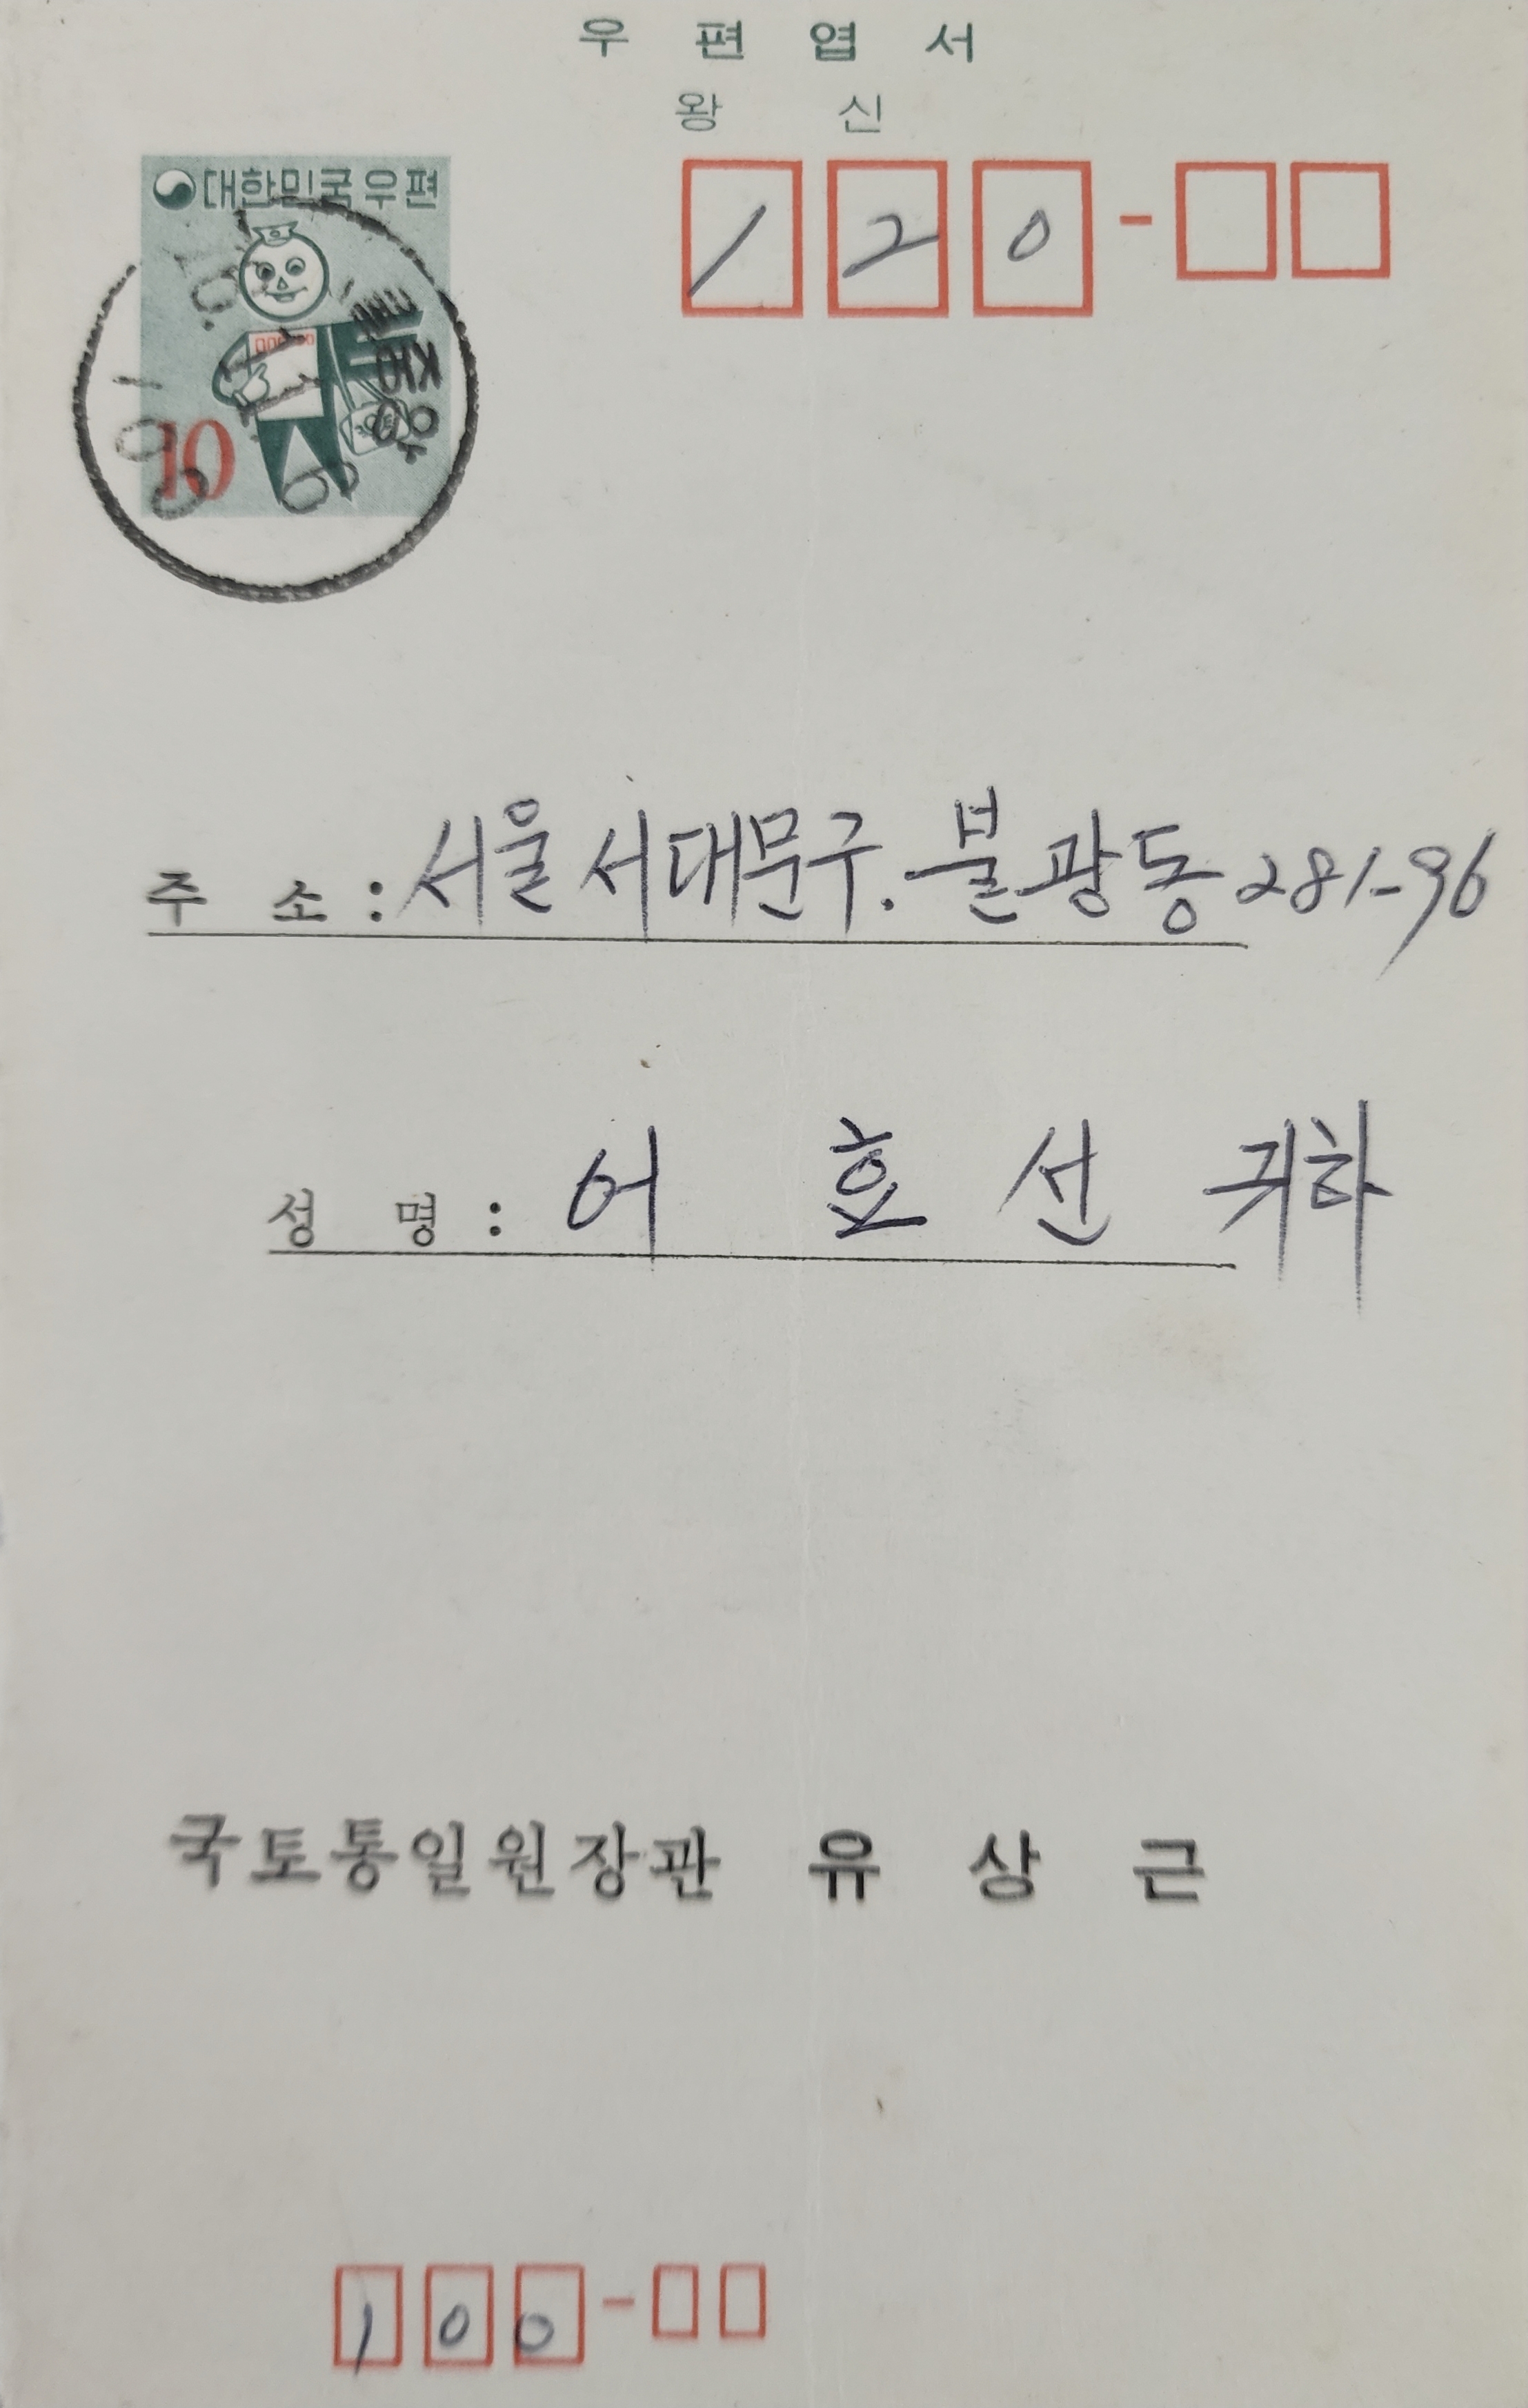 우편엽서
왕신
대한민국우편
10
120-
주소: 서울 서대문구. 불광동 281-96
성명: 어효선 귀하
국토통일원장관 유상근
100-